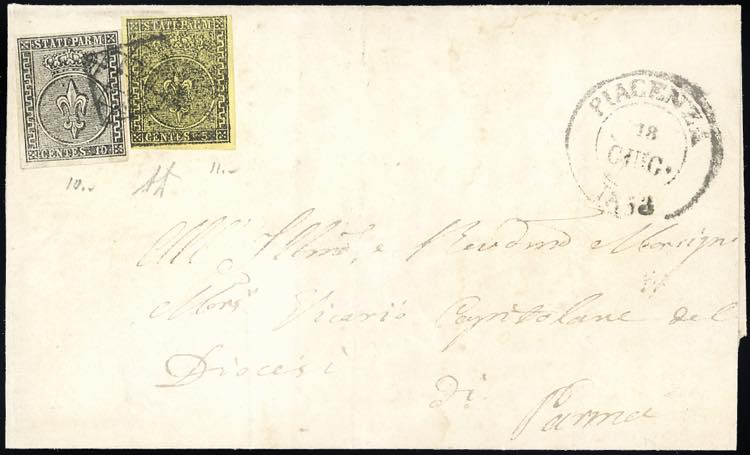 STATI PARM
CENTES 10
STATI PARM
CENTES 5
PIACENZA
18
GIUG.
1853
10..
11..
All' Illmo e Revdmo Monsign
Vicario Capitolare del
Diocesi
di
Parma